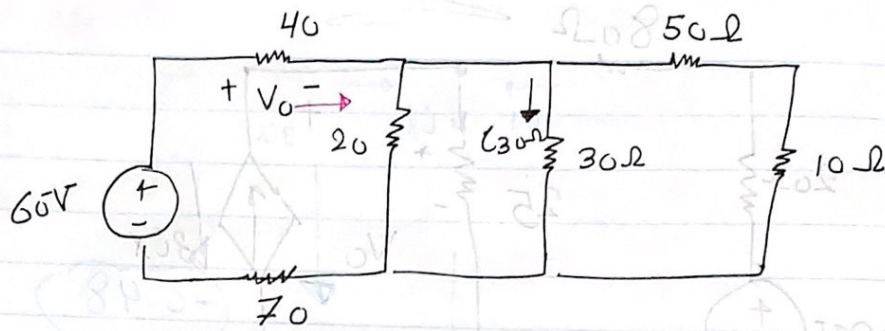 40
50Ω
+ V₀ -
20
i₃₀Ω
30Ω
10Ω
60V
+
-
70